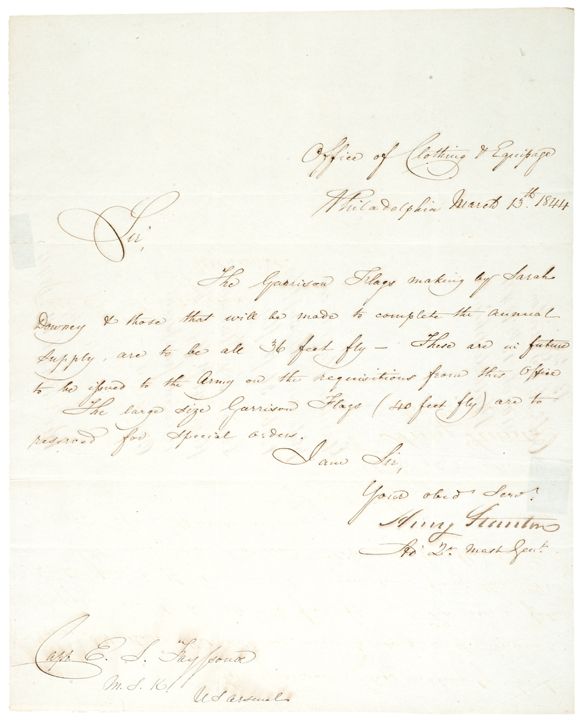 Office of Clothing & Equipage
Philadelphia March 13th 1844
Sir,
The Garrison Flags making by Sarah
Downey & those that will be made to complete the annual
Supply, are to be all 36 feet fly — These are in future
to be issued to the Army on the requisitions from this Office
The large size Garrison Flags (40 feet fly) are to
reserved for special orders.
I am Sir,
Your obed Servt.
Henry Stanton
Genl.
Capt E. S. Fayssoux
M. S. K.
US arsenal